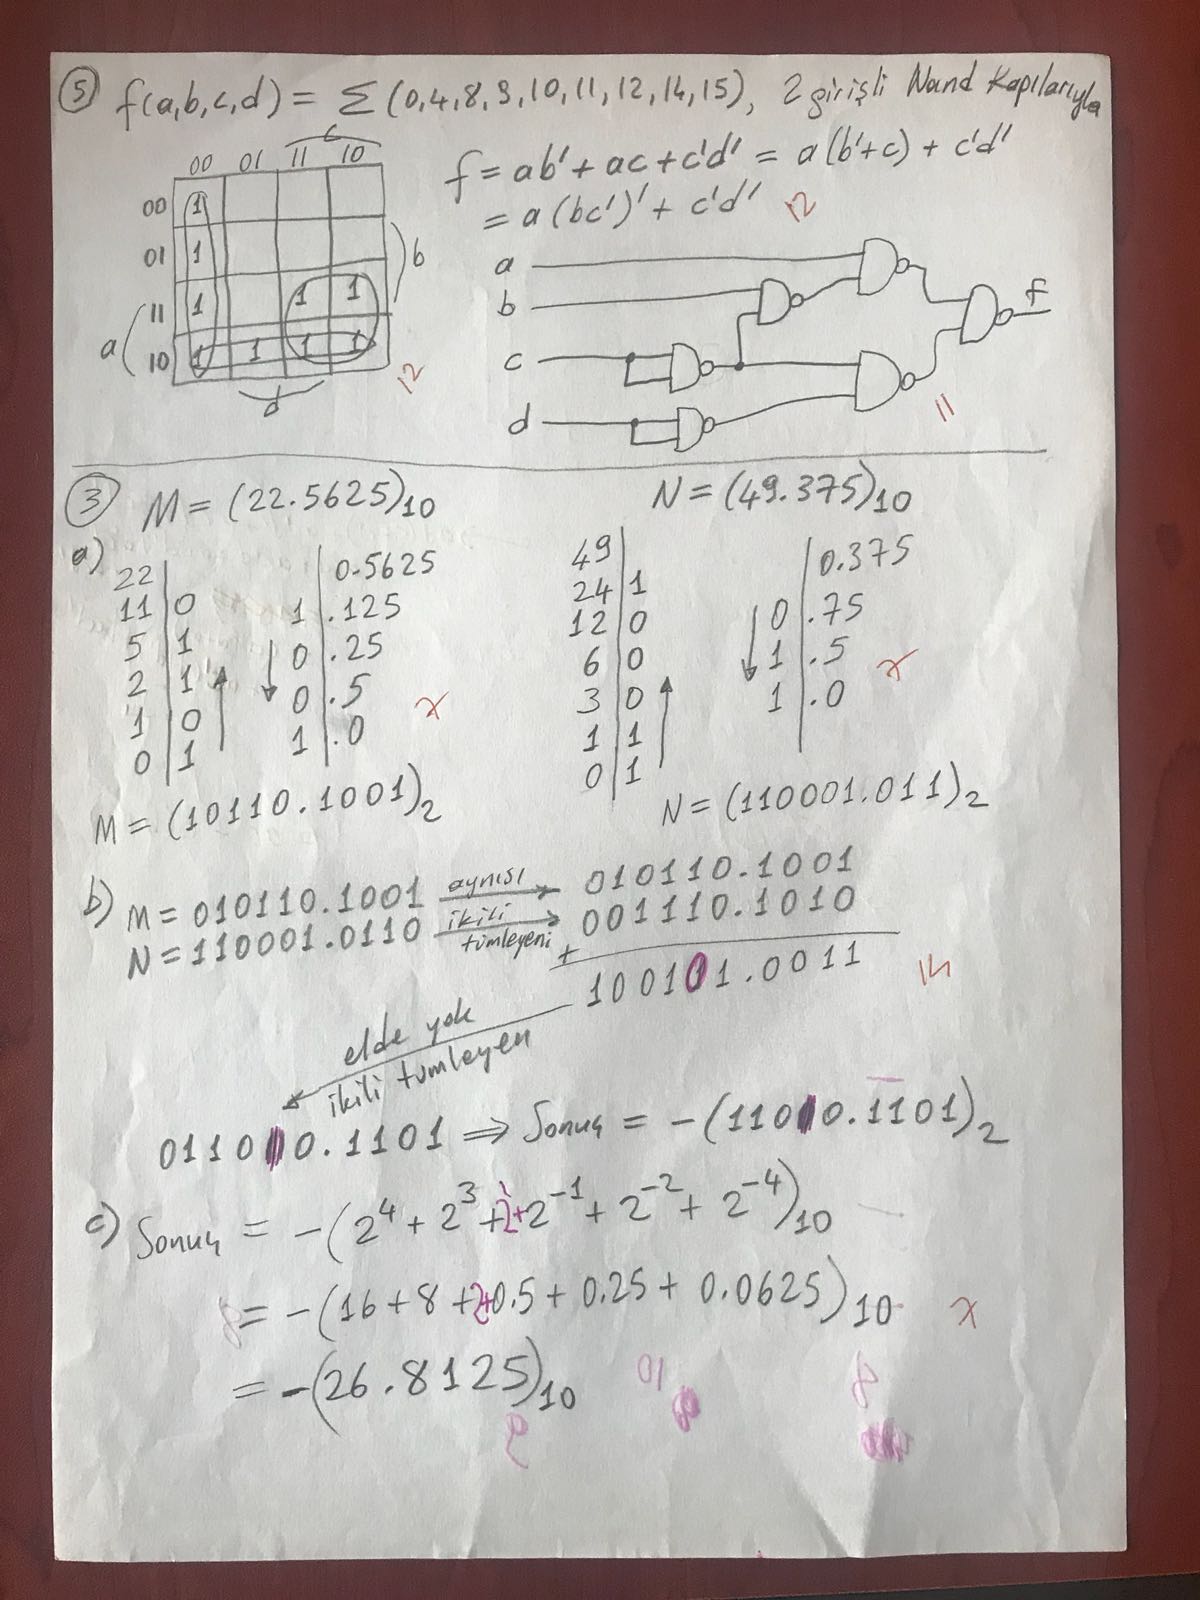 5 f(a,b,c,d) = Σ (0,4,8,9,10,11,12,14,15), 2 girişli Nand Kapılarıyla
c
00 01 11 10
00 1
01 1
11 1 1 1
10 1 1 1 1
a
b
d
12
f = ab' + ac + c'd' = a(b'+c) + c'd'
= a(bc')' + c'd' 12
a
b
c
d
f
11
3 M = (22.5625)10 N = (49.375)10
a)
22
11 0
5 1
2 1
1 0
0 1
0.5625
1 .125
0 .25
0 .5
1 .0
49
24 1
12 0
6 0
3 0
1 1
0 1
0.375
0 .75
1 .5
1 .0
M = (10110.1001)2 N = (110001.011)2
b) M = 010110.1001 aynısı 010110.1001
N = 110001.0110 ikili tümleyeni 001110.1010
+
100101.0011
elde yok
ikili tümleyen
011010.1101 ⇒ Sonuç = -(11010.1101)2
c) Sonuç = -(2^4 + 2^3 + 2^1 + 2^-1 + 2^-2 + 2^-4)10
= -(16 + 8 + 2 + 0.5 + 0.25 + 0.0625)10
= -(26.8125)10